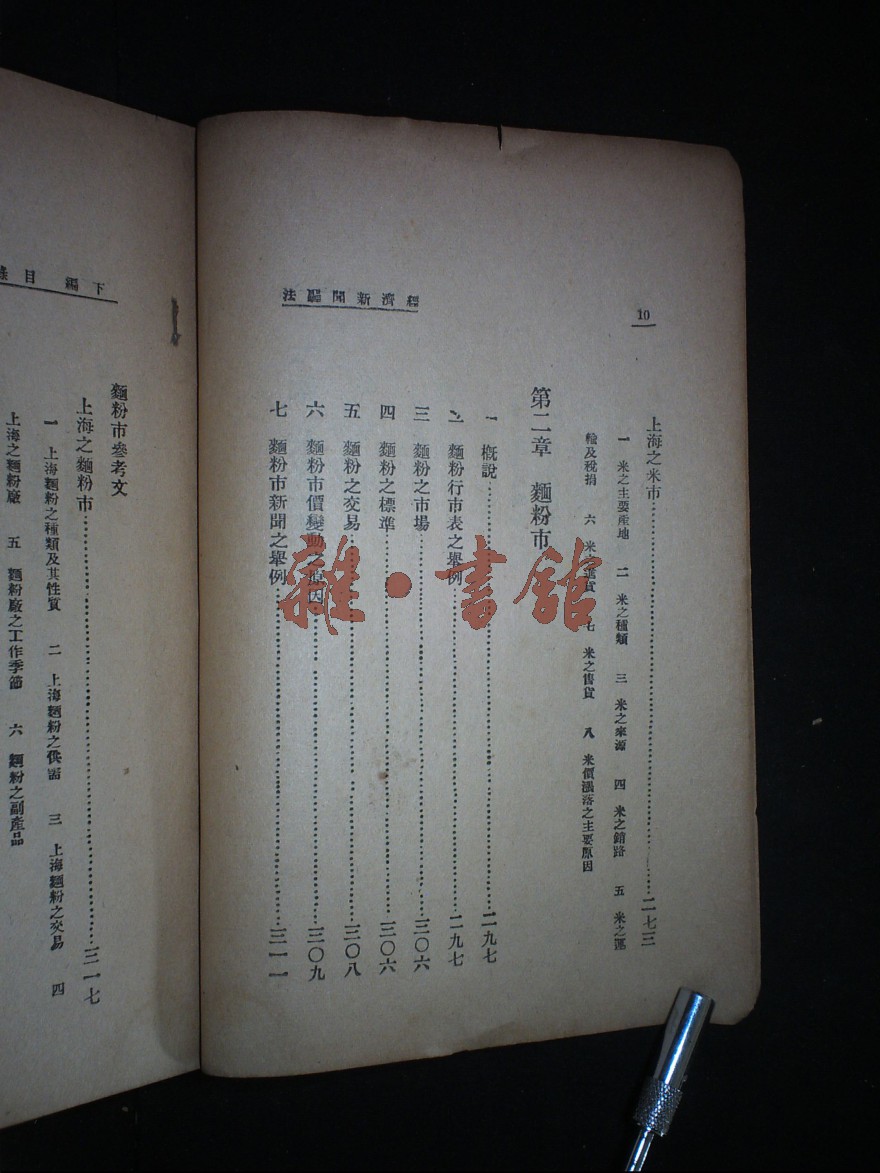 10
經濟新聞讀法
上海之米市……二七三
一 米之主要産地 二 米之種類 三 米之來源 四 米之銷路 五 米之運
輸及稅捐 六 米之進貨 七 米之售貨 八 米價漲落之主要原因
第二章 麵粉市
一 概說……二九七
二 麵粉行市表之舉例……二九七
三 麵粉之市場……三〇六
四 麵粉之標準……三〇六
五 麵粉之交易……三〇八
六 麵粉市價變動之原因……三〇九
七 麵粉市新聞之舉例……三一一
下編 目錄
麵粉市參考文
上海之麵粉市……三一七
一 上海麵粉之種類及其性質 二 上海麵粉之供給 三 上海麵粉之交易 四
上海之麵粉廠 五 麵粉廠之工作季節 六 麵粉之副產品
雜·書館